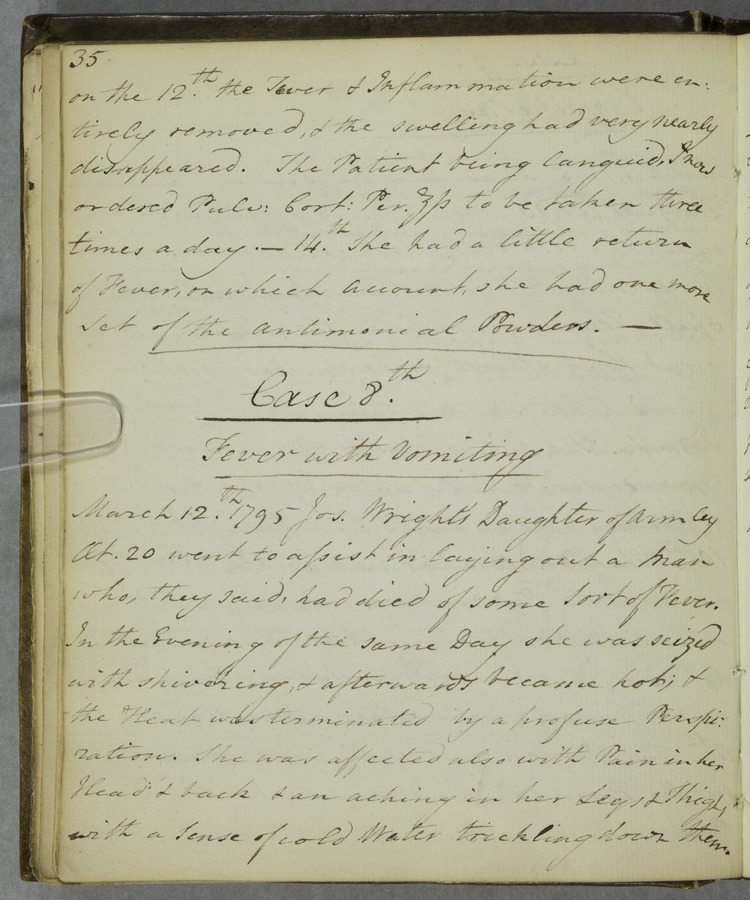 35
on the 12.th the Fever & Inflammation were en:
tirely removed, & the swelling had very nearly
disappeared. The Patient being languid, I now
ordered Pulv: Cort: Per. ʒſs to be taken three
times a day. — 14.th She had a little return
of Fever, on which account, she had one more
set of the antimonial Powders. —
Case 8.th
Fever with Vomiting
March 12.th 1795 Jos. Wright's Daughter of Armley
Æt. 20 went to assist in laying out a Man
who, they said, had died of some sort of Fever.
In the Evening of the same Day she was seized
with shivering, & afterwards became hot; &
the Heat was terminated by a profuse Perspi:
ration. She was affected also with Pain in her
Head & back & an aching in her Legs & Thighs,
with a sense of cold Water trickling down them.